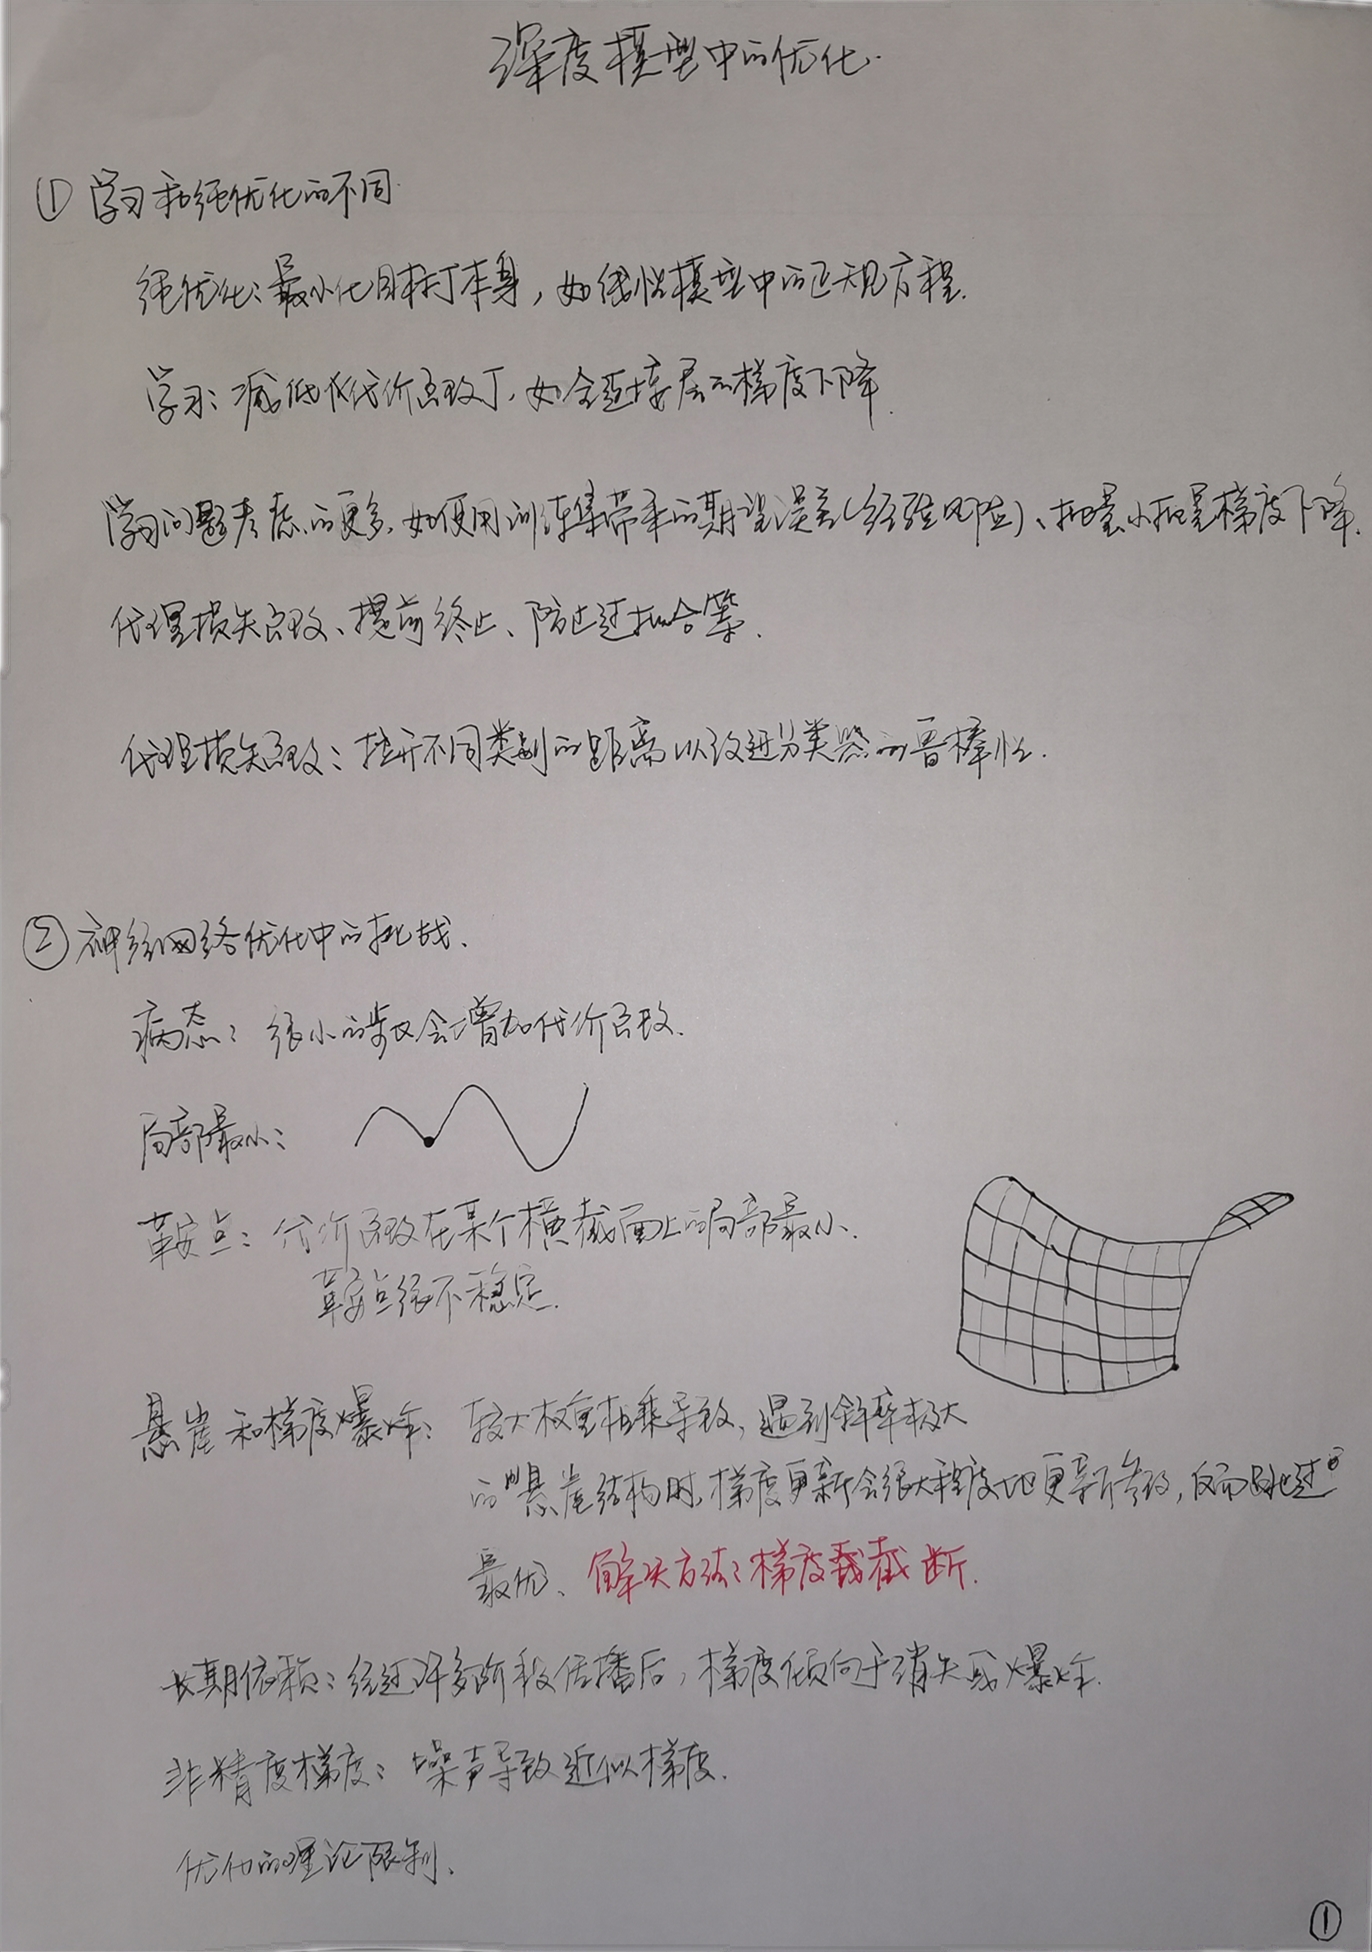 深度模型中的优化.
① 学习和纯优化的不同.
纯优化:最小化目标J本身,如线性模型中的正规方程.
学习:减低代价函数J,如全连接层的梯度下降.
学习问题考虑的更多,如使用训练集带来的期望误差(经验风险)、批量小批量梯度下降.
代理损失函数、提前终止、防止过拟合等.
代理损失函数:拉开不同类别的距离以改进分类器的鲁棒性.
② 神经网络优化中的挑战.
病态:很小的步长会增加代价函数.
局部最小:
鞍点:代价函数在某个横截面上的局部最小.
鞍点很不稳定.
悬崖和梯度爆炸:较大权重相乘导致,遇到斜率极大
的悬崖结构时,梯度更新会很大程度地更新参数,反而跳过
最优、解决方法:梯度截断.
长期依赖:经过许多阶段传播后,梯度倾向于消失或爆炸.
非精度梯度:噪声导致近似梯度.
优化的理论限制.
①